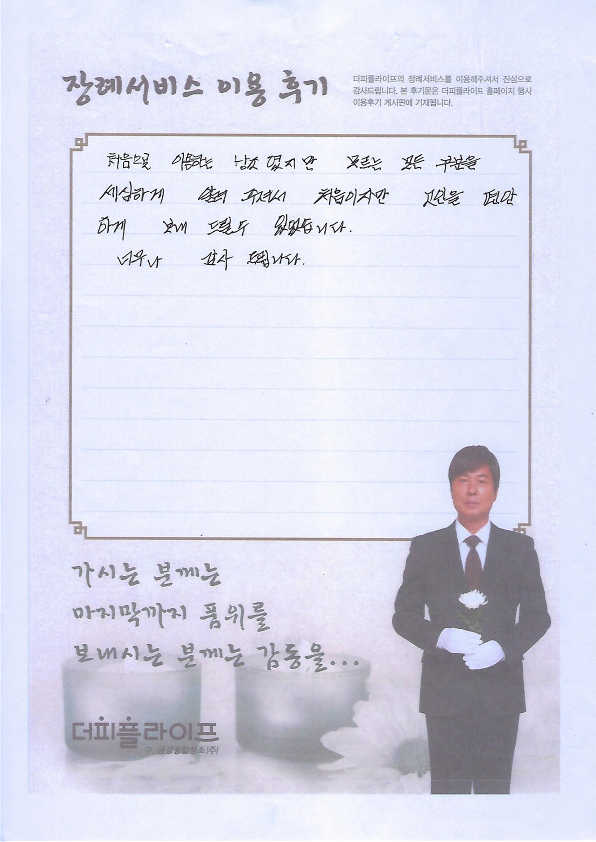 장례서비스 이용 후기
더피플라이프의 장례서비스를 이용해주셔서 진심으로
감사드립니다. 본 후기문은 더피플라이프 홈페이지 행사
이용후기 게시판에 기재됩니다.
처음으로 이용하는 낯설 지만 모르는 모든 부분을
세심하게 알려 주셔서 처음이지만 고인을 편안
하게 보내 드릴수 있었습니다.
너무나 감사 드립니다.
가시는 분께는
마지막까지 품위를
보내시는 분께는 감동을...
더피플라이프
구. 금강종합상조(주)